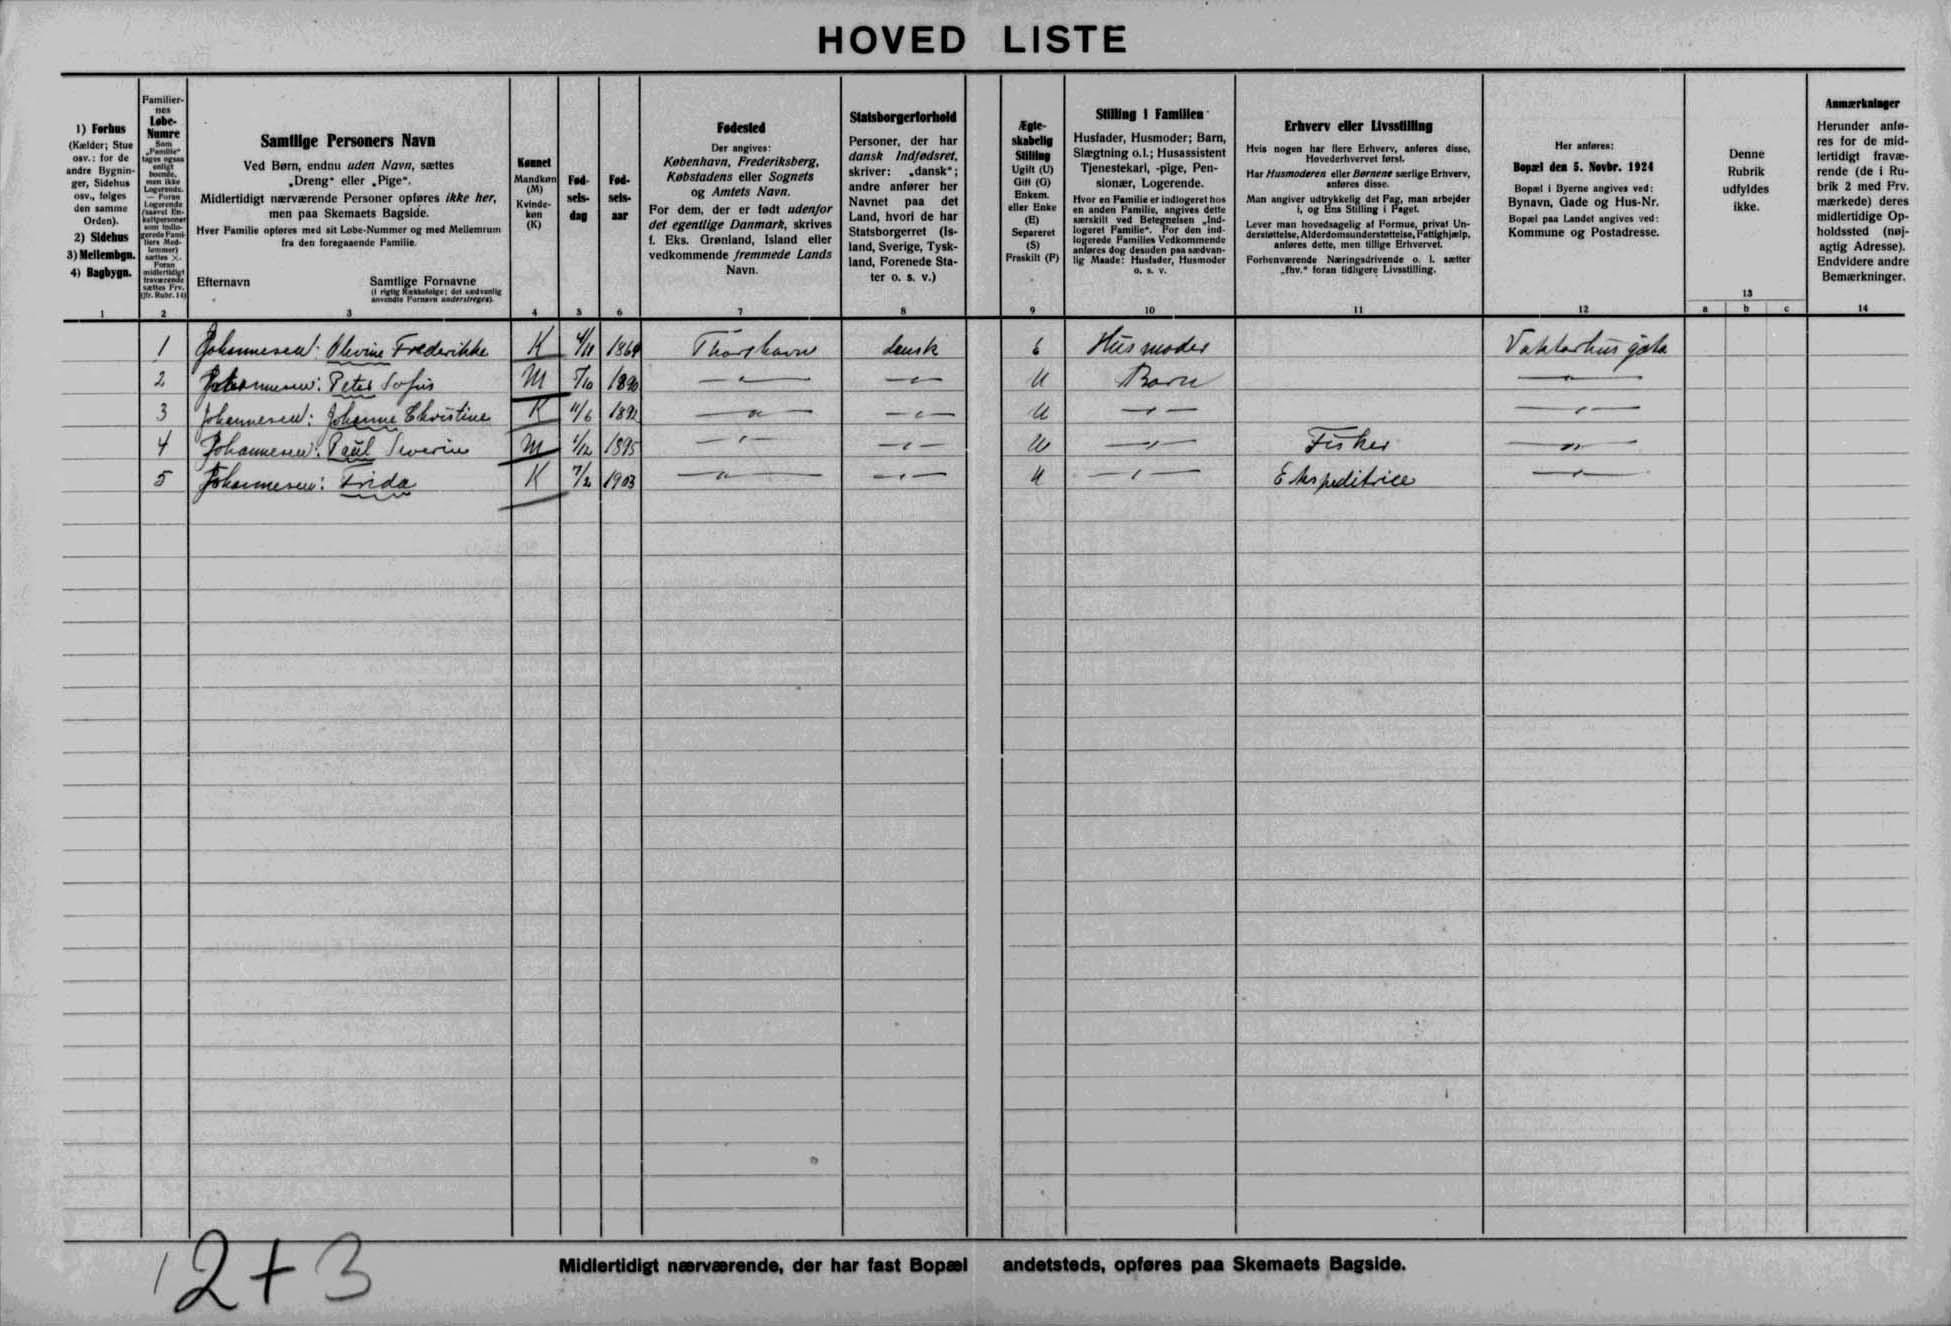 HOVED LISTE
1) Forhus
(Kælder; Stue
osv.: for de
andre Bygnin-
ger, Sidehus
osv., følges
den samme
Orden).
2) Sidehus
3) Mellembgn.
4) Bagbygn.
1
Familier-
nes
Løbe-
Numre
Som
„Familie“
tages ogsaa
enligt
boende,
men ikke
Logerende.
— Foran
Logerende
(saavel En-
keltpersoner
som indlo-
gerede Fami-
liers Med-
lemmer)
sættes ×.
Foran
midlertidigt
fraværende
sættes Frv.
(jfr. Rubr. 14)
2
Samtlige Personers Navn
Ved Børn, endnu uden Navn, sættes
„Dreng“ eller „Pige“.
Midlertidigt nærværende Personer opføres ikke her,
men paa Skemaets Bagside.
Hver Familie opføres med sit Løbe-Nummer og med Mellemrum
fra den foregaaende Familie.
Efternavn Samtlige Fornavne
(i rigtig Rækkefølge; det sædvanlig
anvendte Fornavn understreges).
3
Kønnet
Mandkøn
(M)
Kvinde-
køn
(K)
4
Fød-
sels-
dag
5
Fød-
sels-
aar
6
Fødested
Der angives:
København, Frederiksberg,
Købstadens eller Sognets
og Amtets Navn.
For dem, der er født udenfor
det egentlige Danmark, skrives
f. Eks. Grønland, Island eller
vedkommende fremmede Lands
Navn.
7
Statsborgerforhold
Personer, der har
dansk Indfødsret,
skriver: „dansk“;
andre anfører her
Navnet paa det
Land, hvori de har
Statsborgerret (Is-
land, Sverige, Tysk-
land, Forenede Sta-
ter o. s. v.)
8
Ægte-
skabelig
Stilling
Ugift (U)
Gift (G)
Enkem.
eller Enke
(E)
Separeret
(S)
Fraskilt (F)
9
Stilling i Familien
Husfader, Husmoder; Barn,
Slægtning o.l.; Husassistent
Tjenestekarl, -pige, Pen-
sionær, Logerende.
Hvor en Familie er indlogeret hos
en anden Familie, angives dette
særskilt ved Betegnelsen „Ind-
logeret Familie“. For den ind-
logerede Families Vedkommende
anføres dog desuden paa sædvan-
lig Maade: Husfader, Husmoder
o. s. v.
10
Erhverv eller Livsstilling
Hvis nogen har flere Erhverv, anføres disse,
Hovederhvervet først.
Har Husmoderen eller Børnene særlige Erhverv,
anføres disse.
Man angiver udtrykkelig det Fag, man arbejder
i, og Ens Stilling i Faget.
Lever man hovedsagelig af Formue, privat Un-
derstøttelse, Alderdomsunderstøttelse, Fattighjælp,
anføres dette, men tillige Erhvervet.
Forhenværende Næringsdrivende o. l. sætter
„fhv.“ foran tidligere Livsstilling.
11
Her anføres:
Bopæl den 5. Novbr. 1924
Bopæl i Byerne angives ved:
Bynavn, Gade og Hus-Nr.
Bopæl paa Landet angives ved:
Kommune og Postadresse.
12
Denne
Rubrik
udfyldes
ikke.
13
a b c
Anmærkninger
Herunder anfø-
res for de mid-
lertidigt fravæ-
rende (de i Ru-
brik 2 med Frv.
mærkede) deres
midlertidige Op-
holdssted (nøj-
agtig Adresse).
Endvidere andre
Bemærkninger.
14
1 Johannesen: Olevine Frederikke K 4/11 1864 Thorshavn dansk E Husmoder Vaktarhusgøta
2 Johannesen: Peter Sofus M 7/10 1890 — " — — " — U Barn — " —
3 Johannesen: Johanne Christine K 11/6 1892 — " — — " — U — " — — " —
4 Johannesen: Paul Severin M 1/12 1895 — " — — " — U — " — Fisker — " —
5 Johannesen: Frida K 7/2 1903 — " — — " — U — " — Ekspeditrice — " —
2+3
Midlertidigt nærværende, der har fast Bopæl andetsteds, opføres paa Skemaets Bagside.